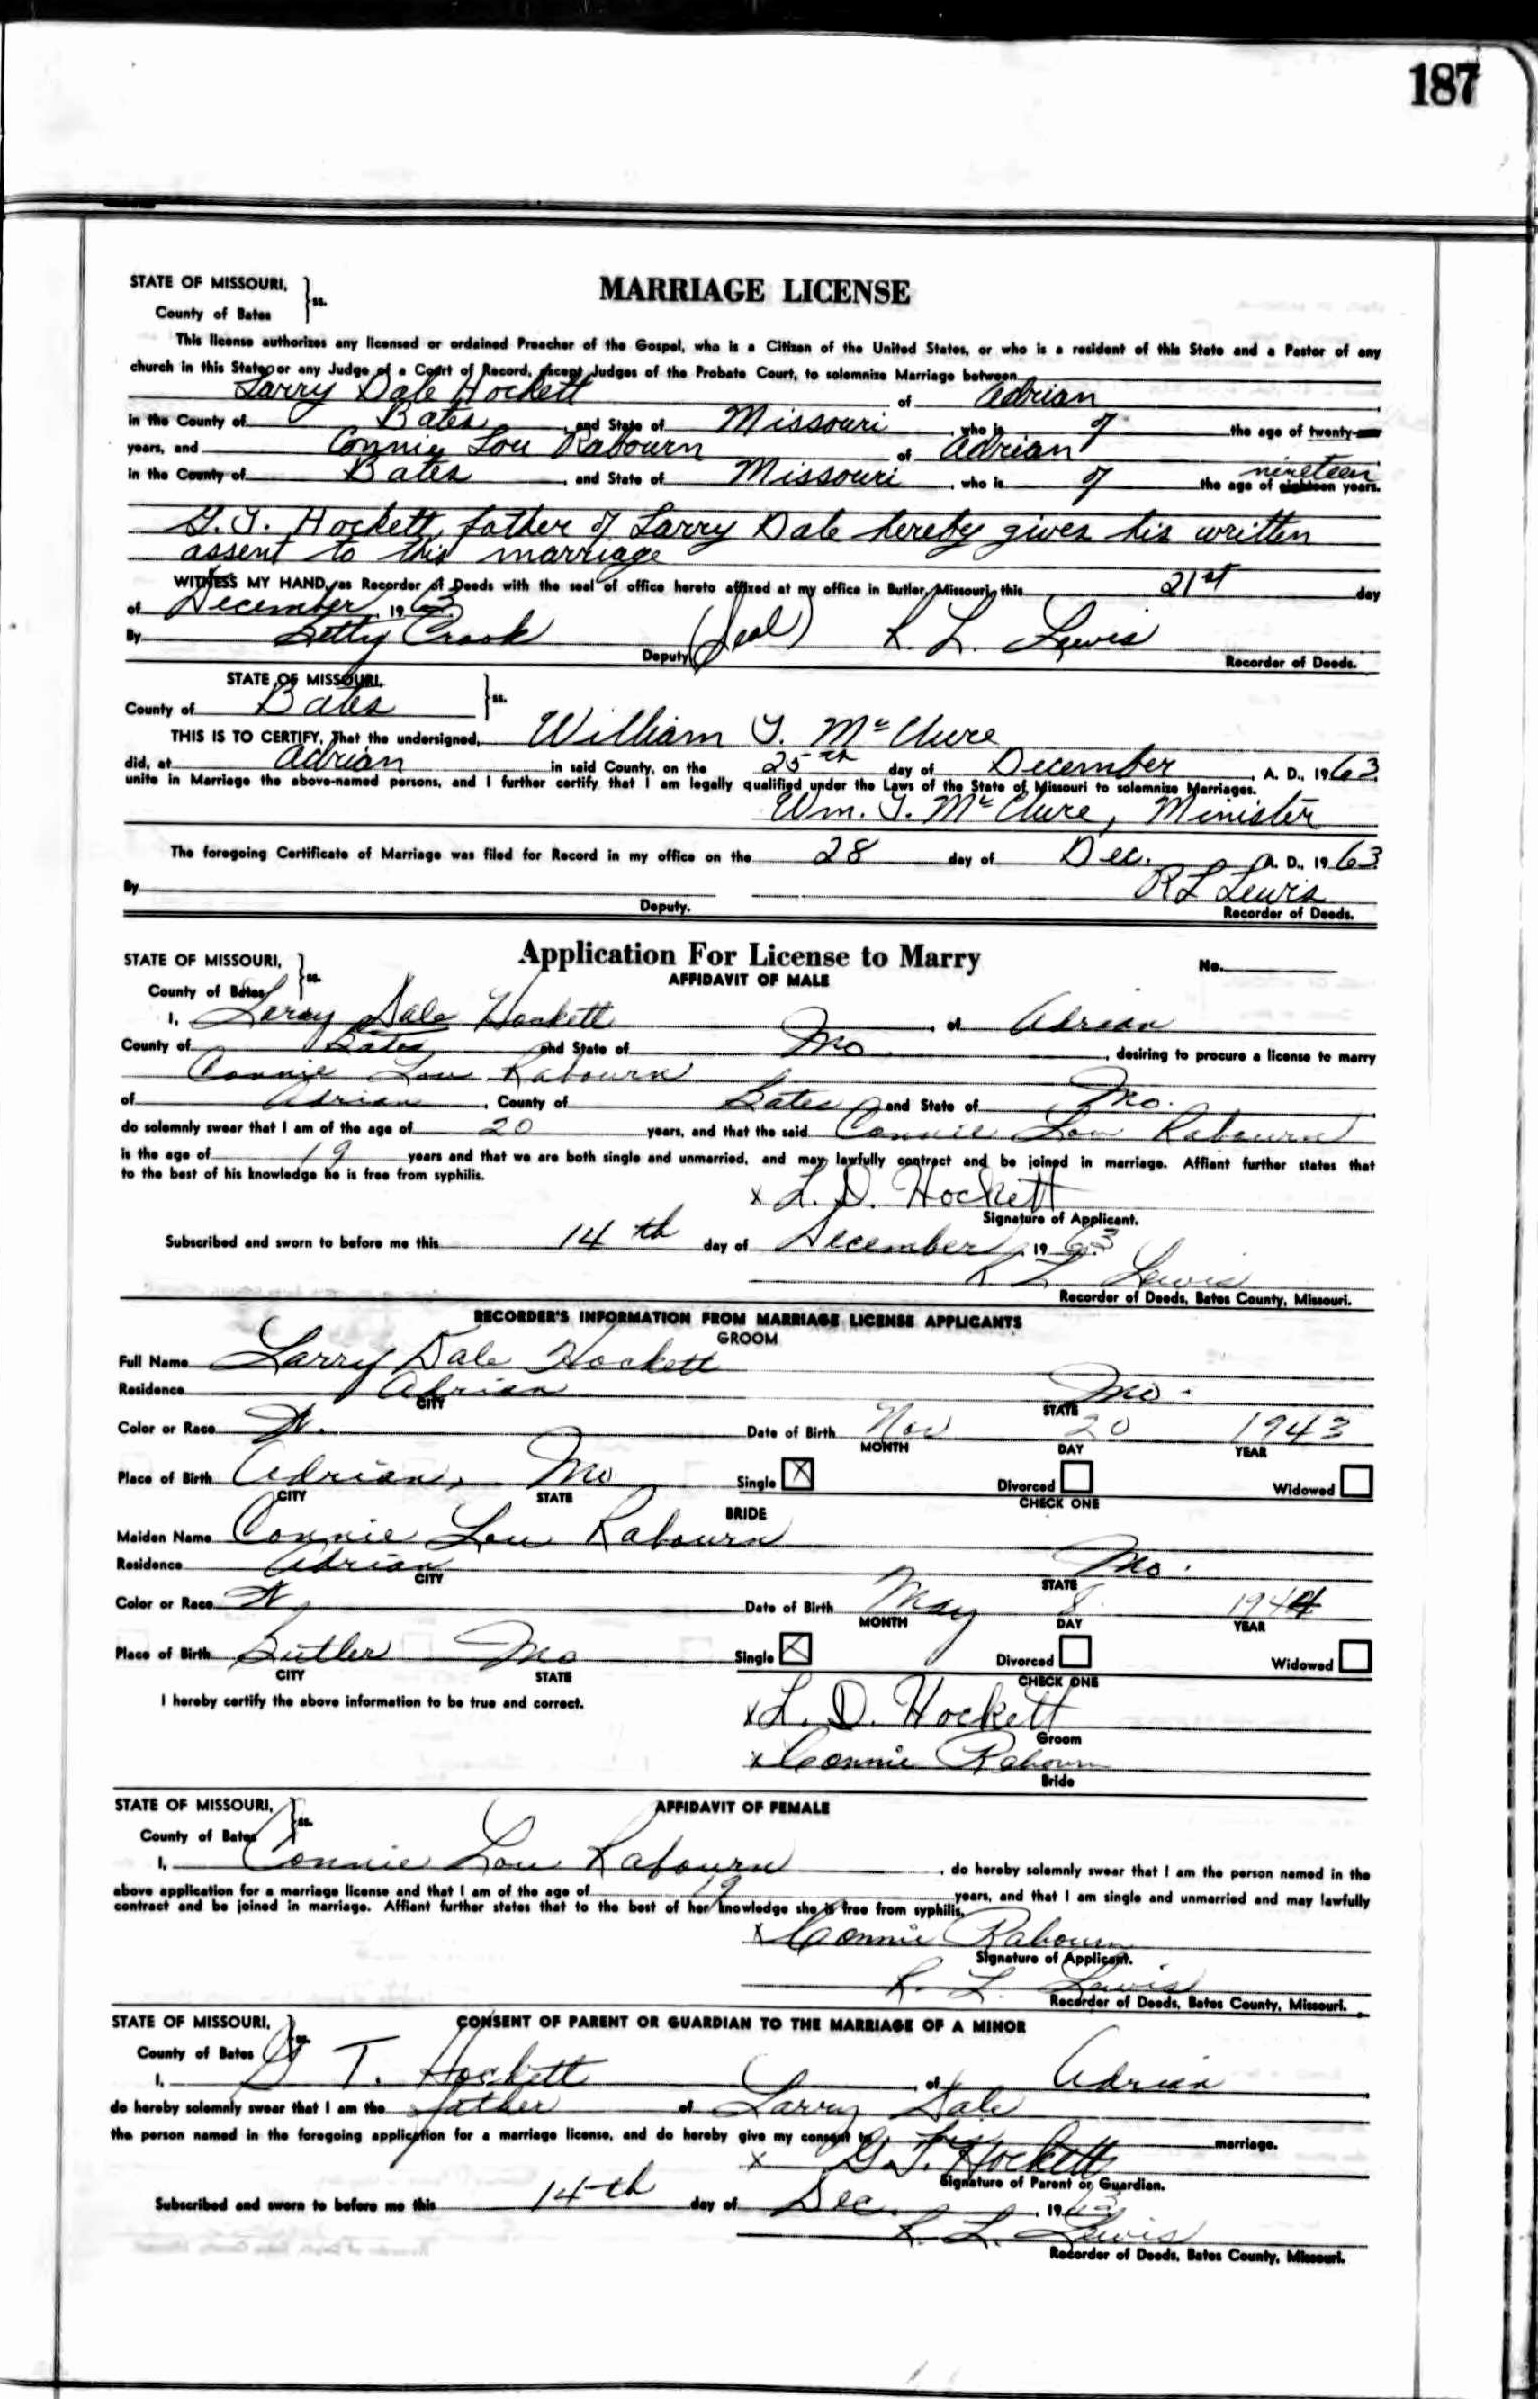 187
STATE OF MISSOURI, } ss.
MARRIAGE LICENSE
County of Bates
This license authorizes any licensed or ordained Preacher of the Gospel, who is a Citizen of the United States, or who is a resident of this State and a Pastor of any
church in this State, or any Judge of a Court of Record, except Judges of the Probate Court, to solemnize Marriage between
Larry Dale Hockett of Adrian
in the County of Bates and State of Missouri, who is of the age of twenty-one
years, and Connie Lou Rabourn of Adrian
in the County of Bates, and State of Missouri, who is of the age of eighteen years. nineteen
G. T. Hockett, father of Larry Dale hereby gives his written
assent to this marriage
WITNESS MY HAND, as Recorder of Deeds with the seal of office hereto affixed at my office in Butler, Missouri, this 21st day
of December, 1963
By Betty Crook Deputy (Seal) R. L. Lewis Recorder of Deeds.
STATE OF MISSOURI, } ss.
County of Bates
THIS IS TO CERTIFY, That the undersigned, William T. McClure
did, at Adrian in said County, on the 25th day of December, A. D., 1963
unite in Marriage the above-named persons, and I further certify that I am legally qualified under the Laws of the State of Missouri to solemnize Marriages.
Wm. T. McClure, Minister
The foregoing Certificate of Marriage was filed for Record in my office on the 28 day of Dec. A. D., 1963
R L Lewis
By Deputy. Recorder of Deeds.
STATE OF MISSOURI, } ss.
Application For License to Marry
No.
AFFIDAVIT OF MALE
County of Bates
I, Larry Dale Hockett, of Adrian
County of Bates and State of Mo, desiring to procure a license to marry
Connie Lou Rabourn
of Adrian, County of Bates and State of Mo.
do solemnly swear that I am of the age of 20 years, and that the said Connie Lou Rabourn
is the age of 19 years and that we are both single and unmarried, and may lawfully contract and be joined in marriage. Affiant further states that
to the best of his knowledge he is free from syphilis.
x L. D. Hockett
Signature of Applicant.
Subscribed and sworn to before me this 14th day of December, 1963
R L Lewis
Recorder of Deeds, Bates County, Missouri.
RECORDER'S INFORMATION FROM MARRIAGE LICENSE APPLICANTS
GROOM
Full Name Larry Dale Hockett
Residence Adrian Mo.
CITY STATE
Color or Race W. Date of Birth Nov 20 1943
MONTH DAY YEAR
Place of Birth Adrian, Mo Single X Divorced Widowed
CITY STATE CHECK ONE
BRIDE
Maiden Name Connie Lou Rabourn
Residence Adrian Mo.
CITY STATE
Color or Race W. Date of Birth May 8 1944
MONTH DAY YEAR
Place of Birth Butler Mo Single X Divorced Widowed
CITY STATE CHECK ONE
I hereby certify the above information to be true and correct.
x L. D. Hockett
Groom
x Connie Rabourn
Bride
STATE OF MISSOURI, } ss.
AFFIDAVIT OF FEMALE
County of Bates
I, Connie Lou Rabourn, do hereby solemnly swear that I am the person named in the
above application for a marriage license and that I am of the age of 19 years, and that I am single and unmarried and may lawfully
contract and be joined in marriage. Affiant further states that to the best of her knowledge she is free from syphilis.
x Connie Rabourn
Signature of Applicant.
R. L. Lewis
Recorder of Deeds, Bates County, Missouri.
STATE OF MISSOURI, } ss.
CONSENT OF PARENT OR GUARDIAN TO THE MARRIAGE OF A MINOR
County of Bates
I, G T. Hockett, of Adrian
do hereby solemnly swear that I am the father of Larry Dale
the person named in the foregoing application for a marriage license, and do hereby give my consent to his marriage.
x G. T. Hockett
Signature of Parent or Guardian.
Subscribed and sworn to before me this 14th day of Dec., 1963
R. L. Lewis
Recorder of Deeds, Bates County, Missouri.